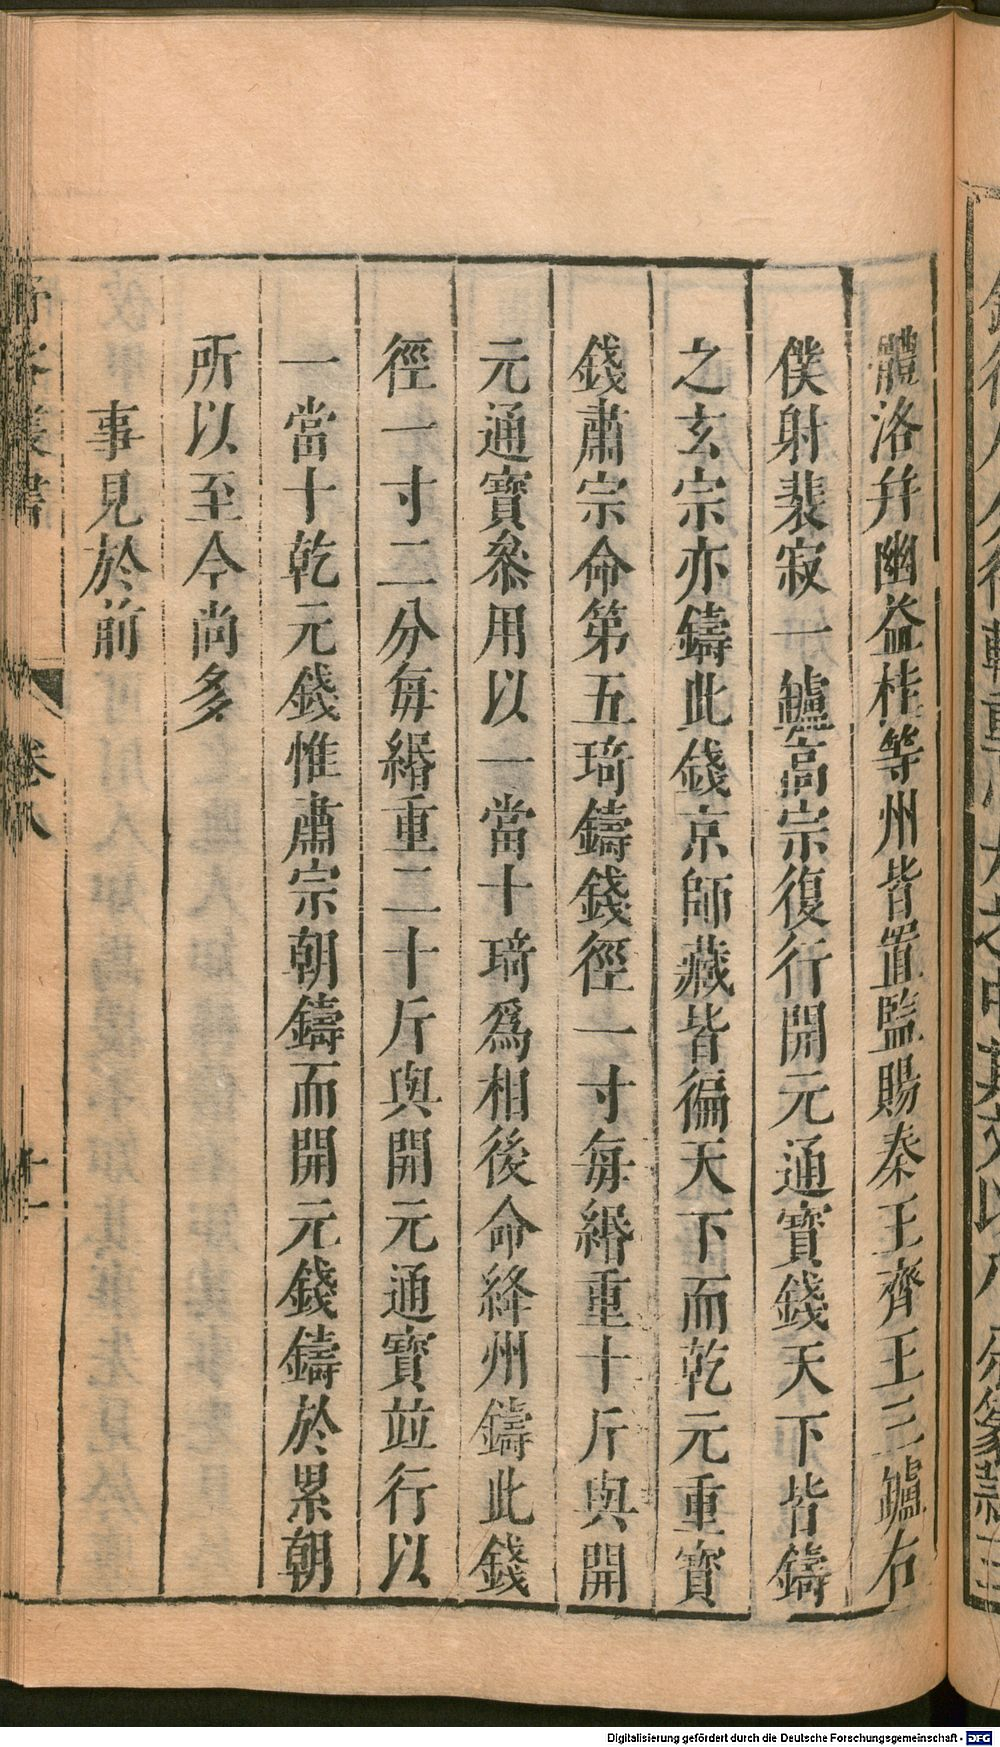 體洛幷幽益桂等州皆置監賜秦王齊王三鑪右
僕射裴寂一鑪高宗復行開元通寶錢天下皆鑄
之玄宗亦鑄此錢京師藏皆徧天下而乾元重寶
錢肅宗命第五琦鑄錢徑一寸每緡重十斤與開
元通寶叅用以一當十琦爲相後命絳州鑄此錢
徑一寸二分每緡重二十斤與開元通寶竝行以
一當十乾元錢惟肅宗朝鑄而開元錢鑄於累朝
所以至今尚多
事見於前
卷八
十一
Digitalisierung gefördert durch die Deutsche Forschungsgemeinschaft - DFG